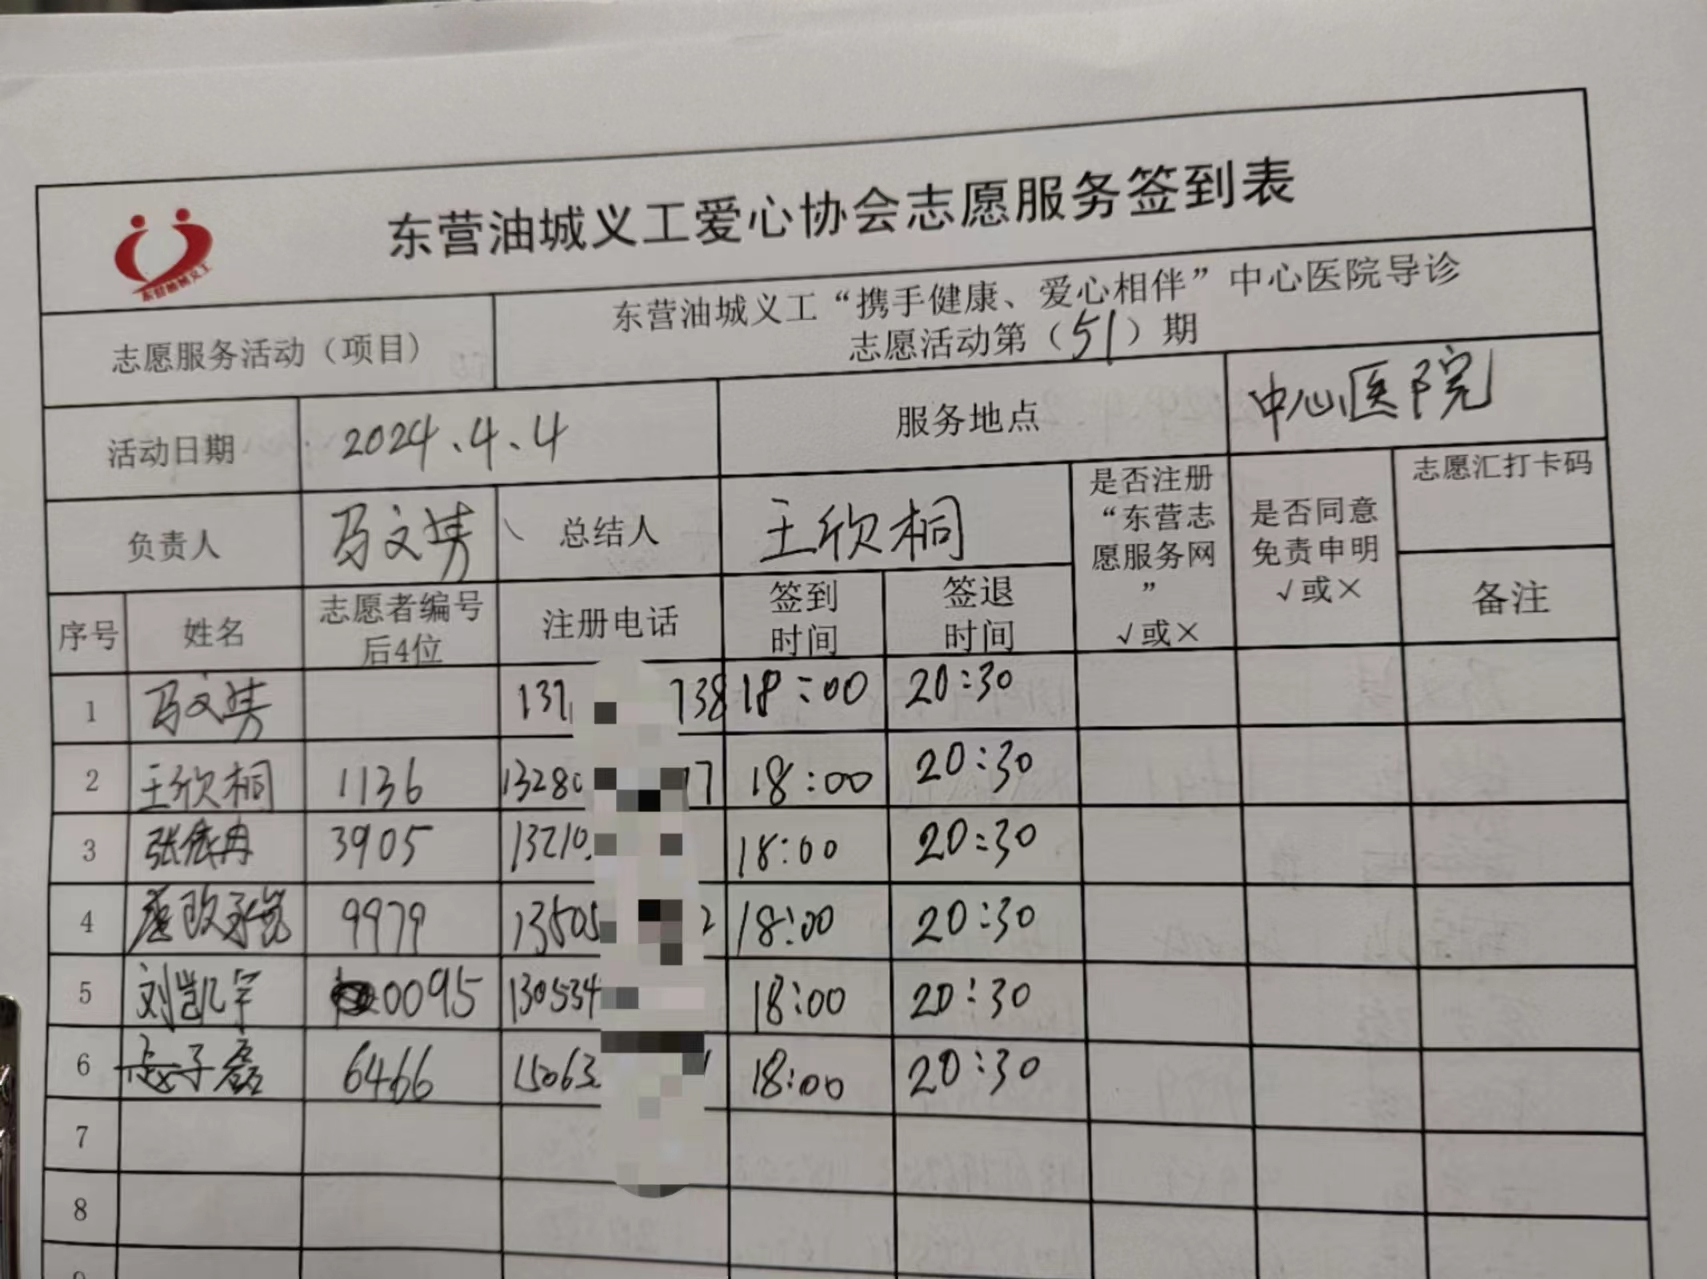 东营油城义工
东营油城义工爱心协会志愿服务签到表
志愿服务活动（项目）
东营油城义工“携手健康、爱心相伴”中心医院导诊
志愿活动第（51）期
活动日期 2024.4.4 服务地点 中心医院
负责人 马文涛 总结人 王欣桐
是否注册
“东营志
愿服务网
”
√或×
是否同意
免责申明
√或×
志愿汇打卡码
备注
序号 姓名
志愿者编号
后4位
注册电话
签到
时间
签退
时间
1 137 738 18:00 20:30
2 王欣桐 1136 13280 17 18:00 20:30
3 3905 13210 18:00 20:30
4 9979 13505 2 18:00 20:30
5 刘凯宇 0095 130534 18:00 20:30
6 孟子磊 6466 15063 18:00 20:30
7
8